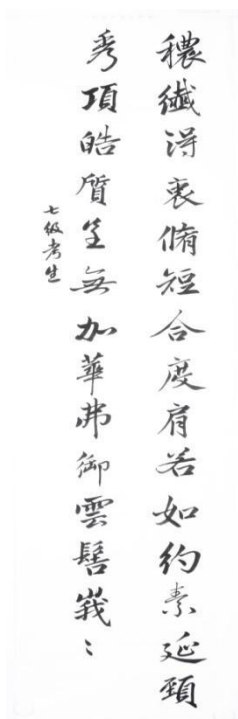 穠纖得衷脩短合度肩若如約素延頸
秀項皓質呈無加華弗御雲髻峩〻
七級考生